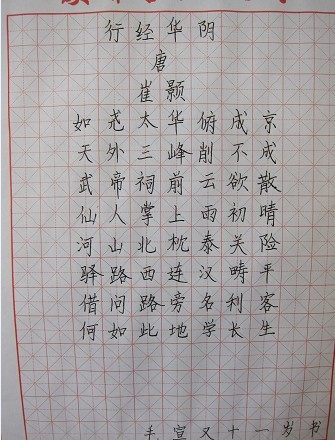 行经华阴
唐
崔颢
如太华俯成京
天外三峰削不成
武帝祠前云欲散
仙人掌上雨初晴
河山北枕泰关险
驿路西连汉畴平
借问路旁名利客
何如此地学长生
毛宣又十一岁书